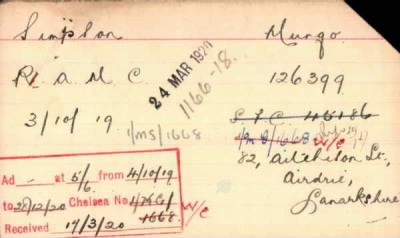 Simpson Mungo
R. A M C. 126399
24 MAR 1920
1166-18.
3/10/19 S.F.C. 46186
1/MS/1668 1/MS/1668
82, Aitchison St.,
Airdrie,
Lanarkshire
Ad — at 5/6 from 4/10/19
to 28/12/20 Chelsea No 1/
1668
Received 17/3/20